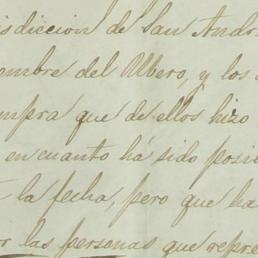 isdiccion de San Andr
ombre del Albero, y los
mpra que de ellos hizo
en cuanto há sido posi
la fecha, pero que ha
or las personas que repre